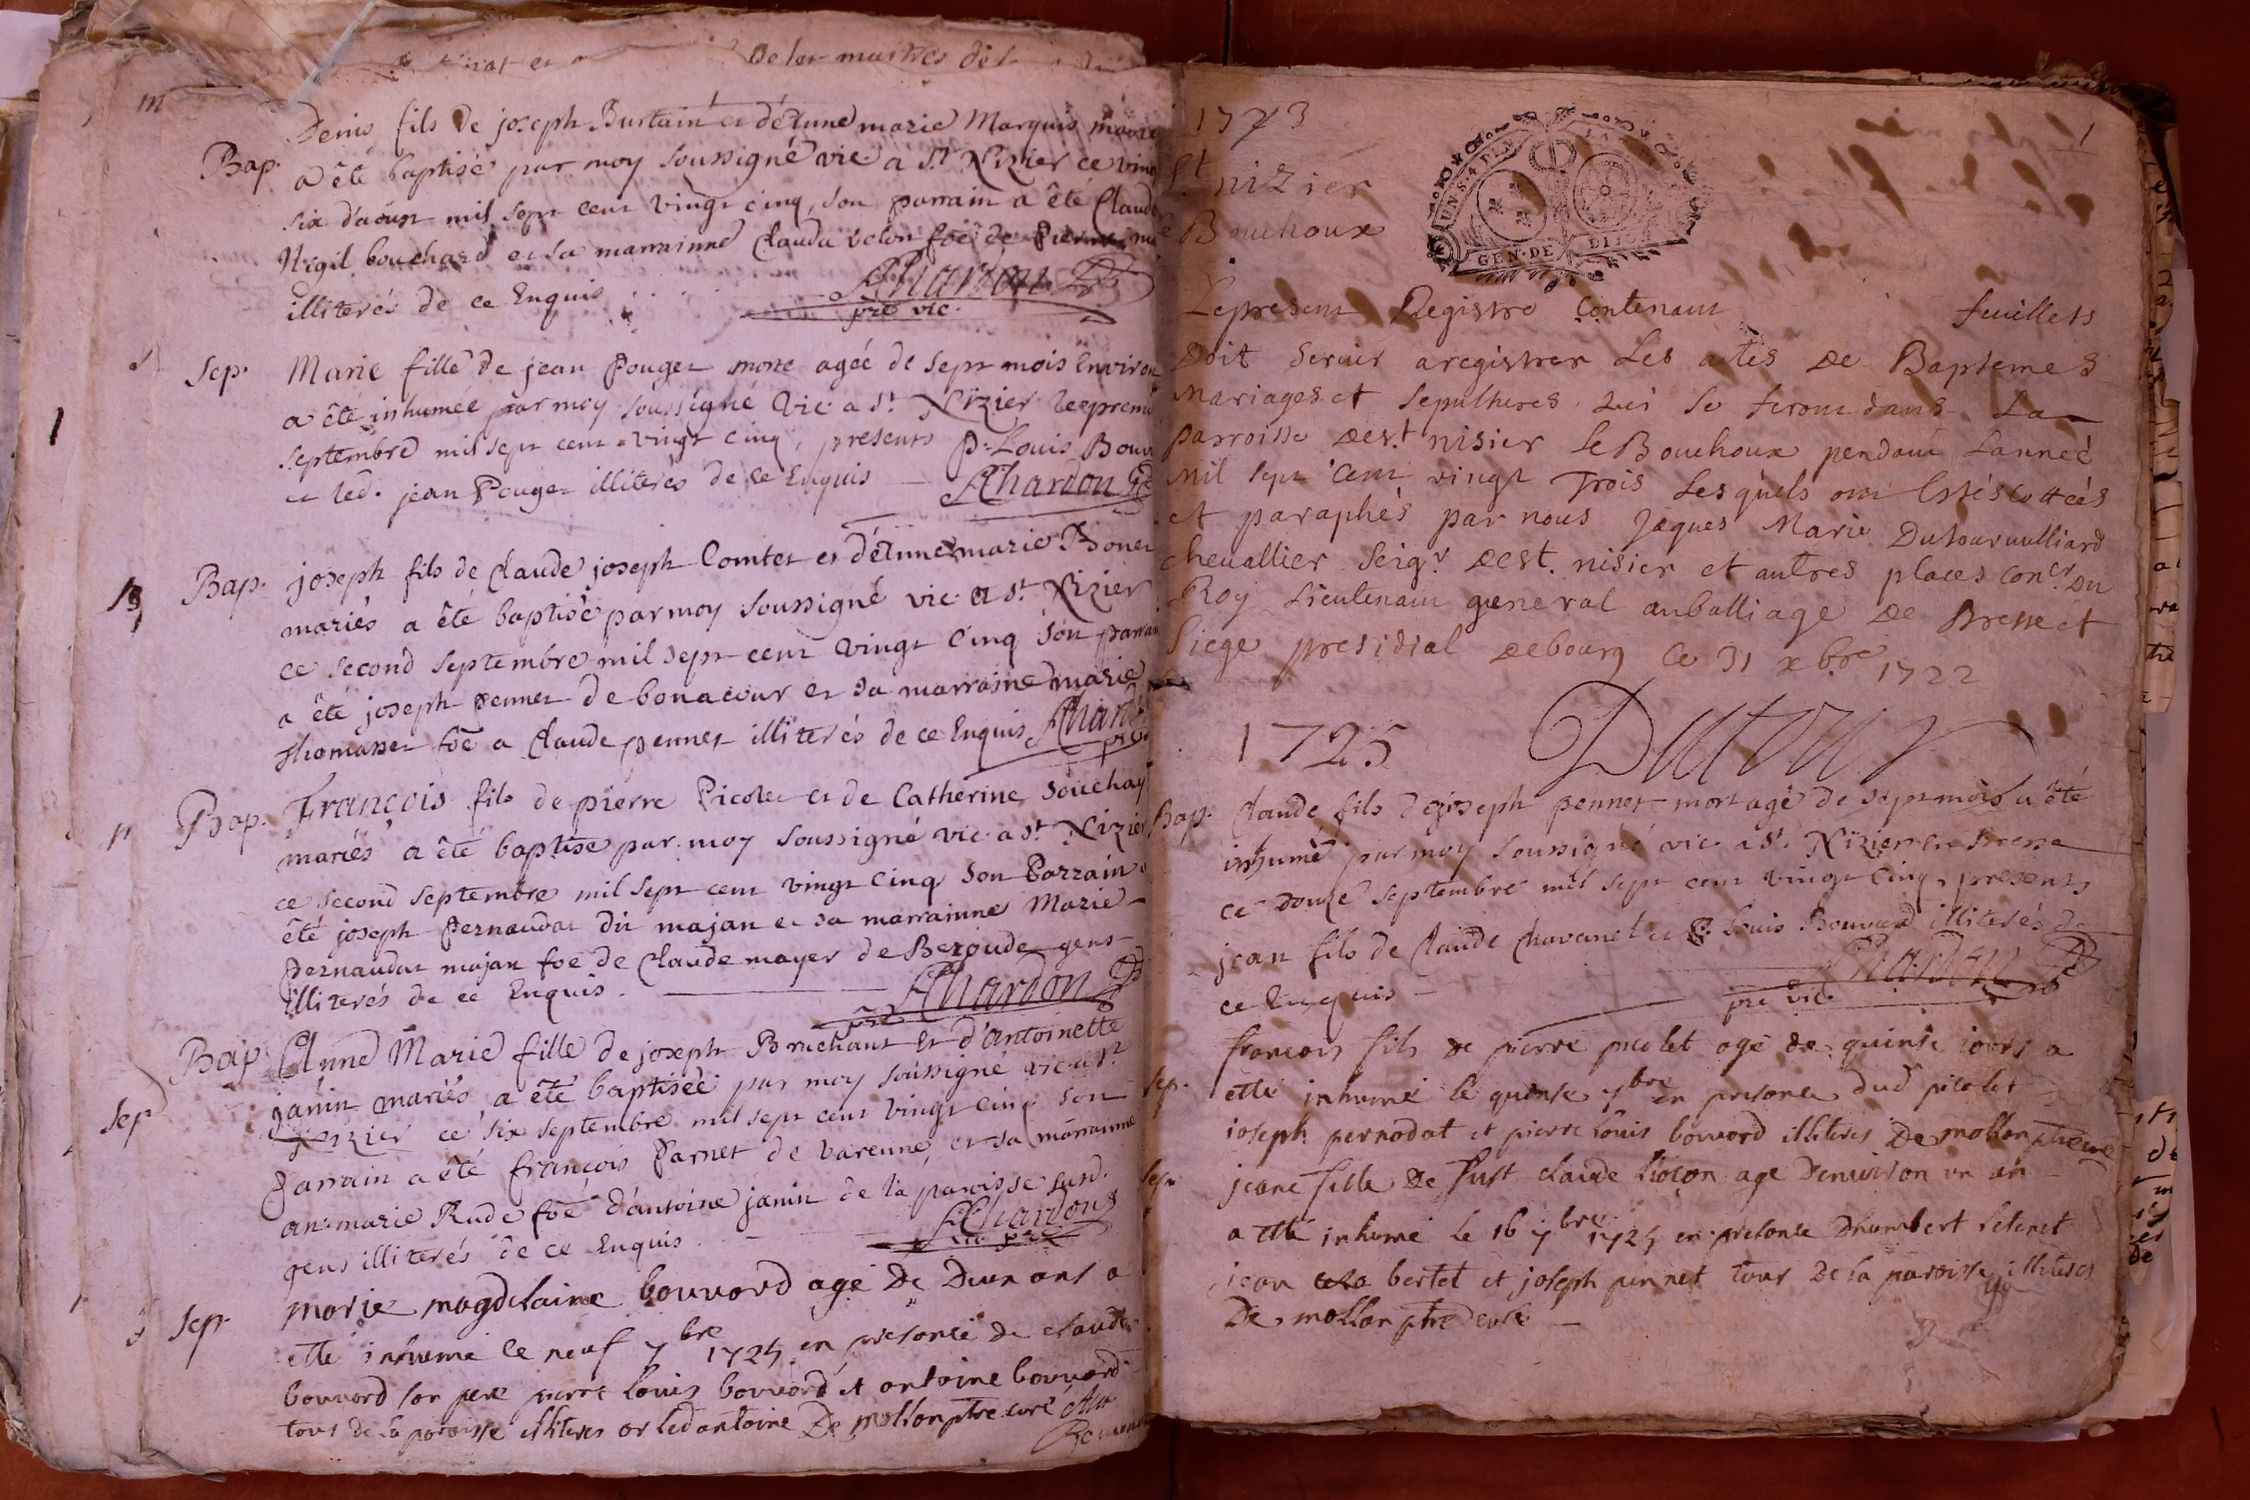 Denis fils de joseph Burtain et détune marie Marquis
Bap. a êté baptisé par moy soussigné vic a St Nizier ce
six d'aoust mil sept cent vingt cinq, son parrain a êté Claude
bouchard et sa marrainne Clauda foê de Pierre
illiterés de ce Enquis
Chardon
pre vic.
Sep. Marie fille de jean Pouget morte ageé de sept mois Environ
a êté inhumeé par moy soussigné Vic a St Nizier
septembre mil sept cent vingt cinq, presents P. Louis
et led. jean Pouget illiterés de ce Enquis
Chardon
Bap. joseph fils de Claude joseph Comtet et détune marie
mariés a êté baptisé par moy soussigné vic a St Nizier
ce second septembre mil sept cent vingt cinq son
a êté joseph pennet de bonacour et sa marraine marie
thomasset foê a Claude pennet illiterés de ce Enquis
Chardon
Bap. François fils de pierre Picolet et de Catherine Souchay
mariés a êté baptisé par moy soussigné vic a St Nizier
ce second septembre mil sept cent vingt cinq son Parrain a
êté joseph Pernaudat dit majan et sa marrainne Marie
Pernaudat majan foê de Claude mayer de Bezoude gens
illiterés de ce Enquis
Chardon
pre
Bap. Anne Marie fille de joseph Bruchant Et d'antoinette
janin mariés a êté baptiseé par moy soussigné vic a St
Nizier ce six septembre mil sept cent vingt cinq son
parrain a êté françois Parnet de varenne et sa marainne
an. marie Rude foê d'antoine janin de la paroisse susd.
gens illiterés de ce Enquis
Chardon
vic pre
Sep. marie magdelaine bouvard agé De Deux ans a
etté inhumé le neuf 7bre 1725 en presence de claude
bouvard son pere pierre louis bouvard et antoine bouvard
tous de la paroisse illiteres or led antoine De mollon ptre curé
1773
1
St nizier
le Bouchoux
GEN·DE DI
Le present Registre Contenant feuillets
Doit servir a registrer Les actes De Baptemes
Mariages et sepultures qui se feront dans La
parroisse De st nisier le Bouchoux pendant Lanneé
Mil sept cent vingt Trois Lesquels ont Estés Cottés
et paraphés par nous Jaques Marie Dutour vulliard
chevallier seigr De st. nisier et autres places Concr Du
Roy Lieutenant general au balliage De Bresse et
Siege presidial De bourg ce 31 xbre 1722
Dutour
1725
Bap. Claude fils de joseph pennet mort agé de sept mois a êté
inhumé par moy soussigné vic a St. Nizier en Bresse
ce douze septembre mil sept cent vingt cinq, presents
jean fils de Claude Chavanel et P. Louis Bouvard illiterés de
ce Enquis
Chardon
pre vic.
Sep. francois fils De pierre picolet agé de quinse iours a
etté inhumé le quinse 7bre en presence dud picolet
ioseph pernodat et pierre louis bouvard illiteres De mollon ptre curé
Sep. jeane fille De Just claude agé Denviron un an
a etté inhumé le 16 7bre 1725 en presence Dhumbert
jean bertet et joseph pennet tous De la paroisse illiteres
De mollon ptre curé